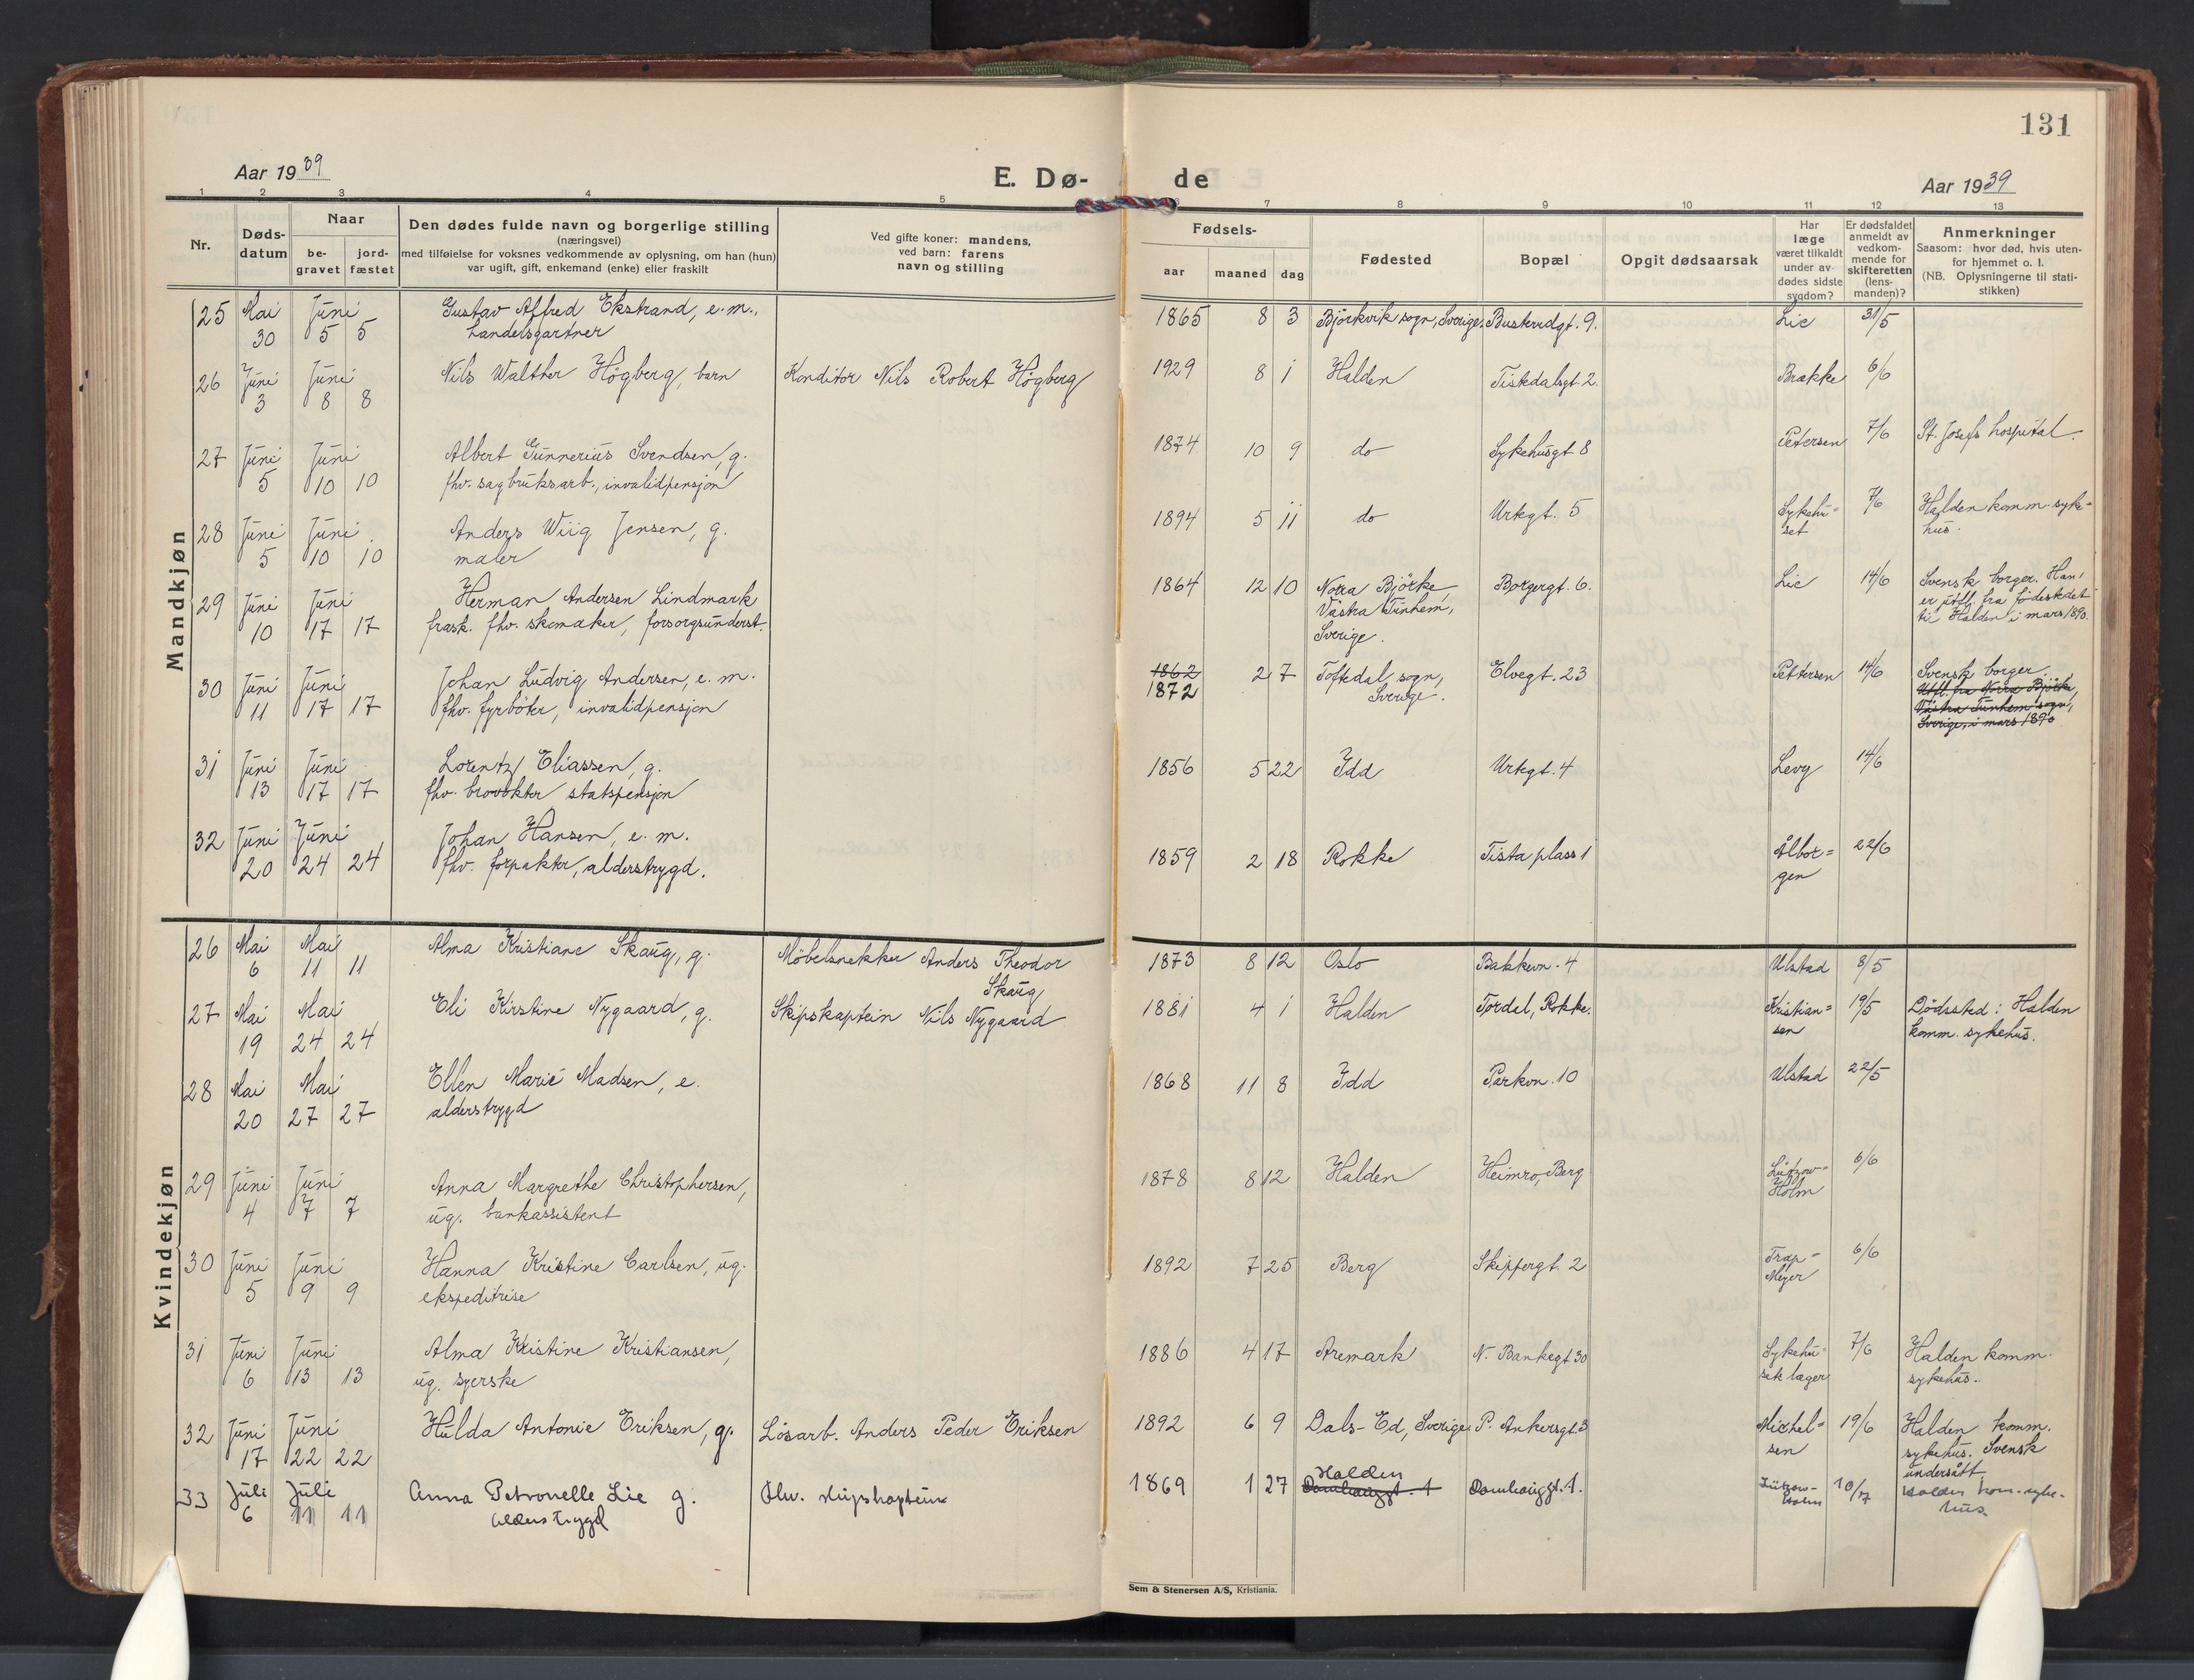 131
Aar 1939
E. Dø-de
Aar 1939
1 2 3 4 5 6 7 8 9 10 11 12 13
Nr.
Døds-
datum
Naar
be-
gravet
jord-
fæstet
Den dødes fulde navn og borgerlige stilling
(næringsvei)
med tilføielse for voksnes vedkommende av oplysning, om han (hun)
var ugift, gift, enkemand (enke) eller fraskilt
Ved gifte koner: mandens,
ved barn: farens
navn og stilling
Fødsels-
aar maaned dag
Fødested
Bopæl
Opgit dødsaarsak
Har
læge
været tilkaldt
under av-
dødes sidste
sygdom?
Er dødsfaldet
anmeldt av
vedkom-
mende for
skifteretten
(lens-
manden)?
Anmerkninger
Saasom: hvor død, hvis uten-
for hjemmet o. l.
(NB. Oplysningerne til stati-
stikken)
Mandkjøn
25 Mai Juni Gustav Alfred Ekstrand, e. m., 1865 8 3 Björkvik sogn, Sverige. Buskerudgt. 9. Lie 31/5
30 5 5 handelsgartner
26 Juni Juni Nils Walther Högberg, barn Konditor Nils Robert Högberg 1929 8 1 Halden Tistedalsgt. 2. Brække 6/6
3 8 8
27 Juni Juni Albert Gunnerius Svendsen, g. 1874 10 9 do Sykehusgt 8 Petersen 7/6 St. Josefs hospital.
5 10 10 fhv. sagbruksarb., invalidpensjon
28 Juni Juni Anders Wiig Jensen, g. 1894 5 11 do Urtegt. 5 Sykehu- 7/6 Halden komm. syke-
5 10 10 maler set hus.
29 Juni Juni Herman Andersen Lindmark 1864 12 10 Norra Björke, Borgergt. 6. Lie 14/6 Svensk borger. Han
10 17 17 frask. fhv. skomaker, forsorgsunderst. Västra Tunhem, er utfl. fra födestedet
Sverige. til Halden i mars 1890.
30 Juni Juni Johan Ludvig Andersen, e. m. 1862 2 7 Töftedal sogn, Elvegt. 23 Pettersen 14/6 Svensk borger
11 17 17 fhv. fyrböter, invalidpensjon 1872 Sverige. Utfl. fra Norra Björke,
Västra Tunhem sogn,
Sverige, i mars 1890
31 Juni Juni Lorentz Eliassen, g. 1856 5 22 Idd Urtegt. 4 Levy 14/6
13 17 17 fhv. brovokter statspensjon
32 Juni Juni Johan Hansen, e. m. 1859 2 18 Rokke Tista plass 1 Ålbor- 22/6
20 24 24 fhv. forpakter, alderstrygd. gen
Kvindekjøn
26 Mai Mai Alma Kristiane Skaug, g. Möbelsnekker Anders Theodor 1873 8 12 Oslo Bakkevn. 4 Ulstad 8/5
6 11 11 Skaug
27 Mai Mai Eli Kirstine Nygaard, g. Skipskaptein Nils Nygaard 1881 4 1 Halden Tordal, Rokke. Kristian- 19/5 Dödssted: Halden
19 24 24 sen komm. sykehus.
28 Mai Mai Ellen Marie Madsen, e. 1868 11 8 Idd Parkvn. 10 Ulstad 22/5
20 27 27 alderstrygd
29 Juni Juni Anna Margrethe Christophersen, 1878 8 12 Halden Heimro, Berg Lützow- 6/6
4 7 7 ug. bankassistent Holm
30 Juni Juni Hanna Kristine Carlsen, ug. 1892 7 25 Berg Skippergt. 2 Trap- 6/6
5 9 9 ekspeditrise Meyer
31 Juni Juni Alma Kristine Kristiansen, 1886 4 17 Aremark N. Bankegt. 30 Sykehu- 7/6 Halden komm.
6 13 13 ug. syerske sets læger sykehus.
32 Juni Juni Hulda Antonie Eriksen, g. Lösarb. Anders Peder Eriksen 1892 6 9 Dals-Ed, Sverige P. Ankersgt. 3 Michel- 19/6 Halden komm.
17 22 22 sen sykehus. Svensk
undersått
33 Juli Juli Anna Petronelle Lie g. fhv. skipskaptein 1869 1 27 Halden Damhauggt. 1. Lützow- 10/7 Halden kom. syke-
6 11 11 alderstrygd Damhauggt. 1 Holm hus.
Sem & Stenersen A/S, Kristiania.